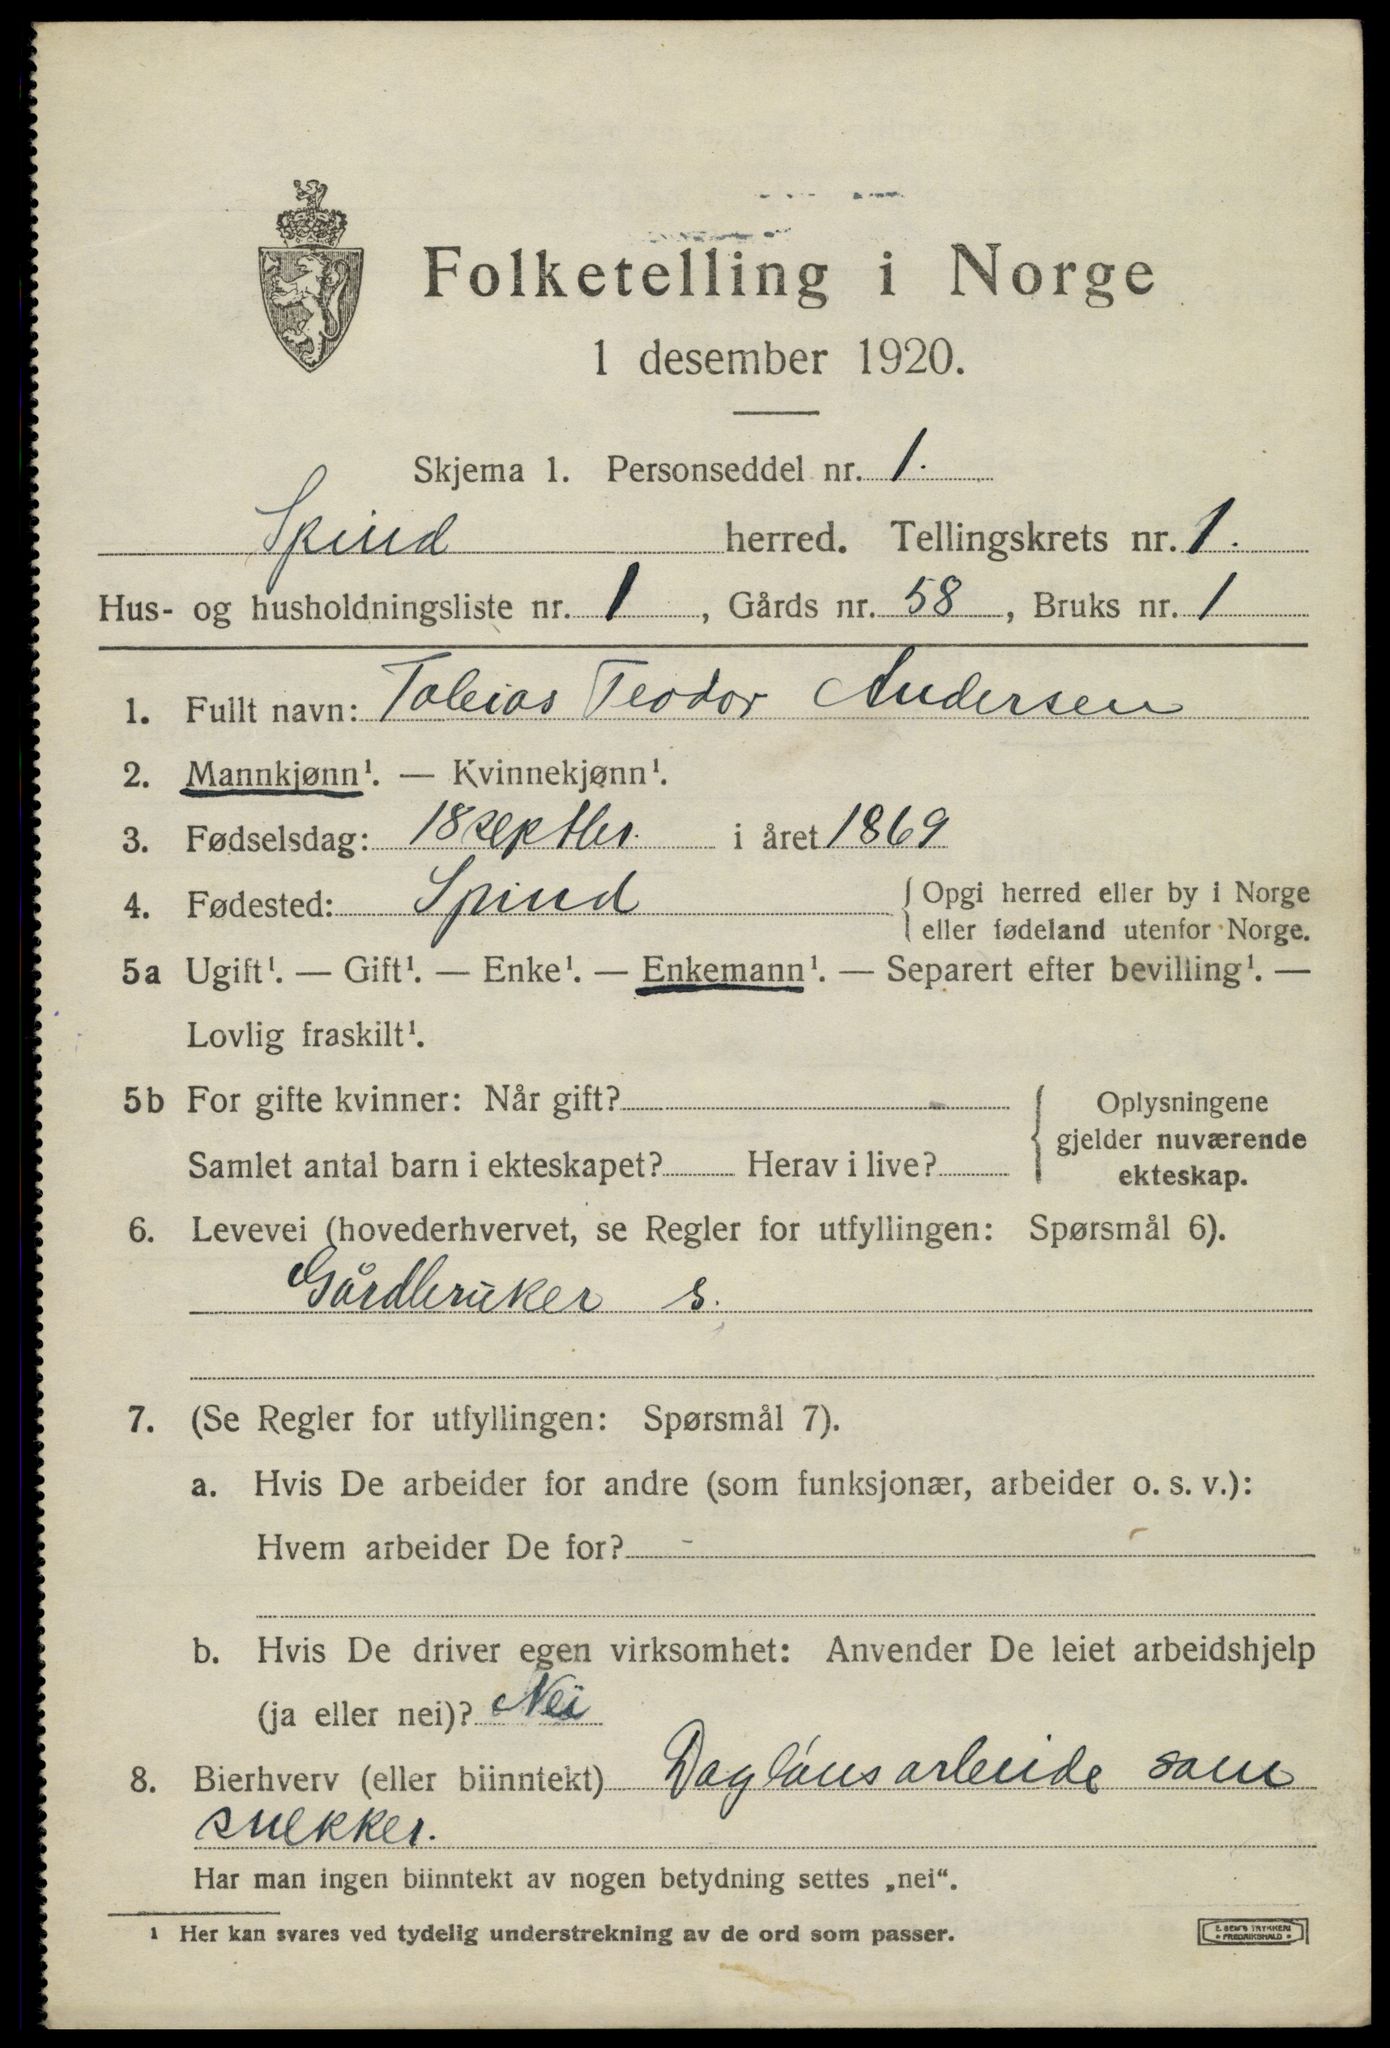 Folketelling i Norge
1 desember 1920.
Skjema 1. Personseddel nr. 1.
Spind herred. Tellingskrets nr. 1.
Hus- og husholdningsliste nr. 1, Gårds nr. 58, Bruks nr. 1
1. Fullt navn: Tobias Teodor Andersen
2. Mannkjønn¹. — Kvinnekjønn¹.
3. Fødselsdag: 18 septbr. i året 1869
4. Fødested: Spind { Opgi herred eller by i Norge
eller fødeland utenfor Norge.
5a Ugift¹. — Gift¹. — Enke¹. — Enkemann¹. — Separert efter bevilling¹. —
Lovlig fraskilt¹.
5b For gifte kvinner: Når gift?
Samlet antal barn i ekteskapet? Herav i live?
{ Oplysningene
gjelder nuværende
ekteskap.
6. Levevei (hovederhvervet, se Regler for utfyllingen: Spørsmål 6).
Gårdbruker s.
7. (Se Regler for utfyllingen: Spørsmål 7).
a. Hvis De arbeider for andre (som funksjonær, arbeider o. s. v.):
Hvem arbeider De for? -
b. Hvis De driver egen virksomhet: Anvender De leiet arbeidshjelp
(ja eller nei)? Nei
8. Bierhverv (eller biinntekt) Daglønsarbeide som
snekker.
Har man ingen biinntekt av nogen betydning settes „nei“.
1 Her kan svares ved tydelig understrekning av de ord som passer.
E. SEM'S TRYKKERI
• FREDRIKSHALD •